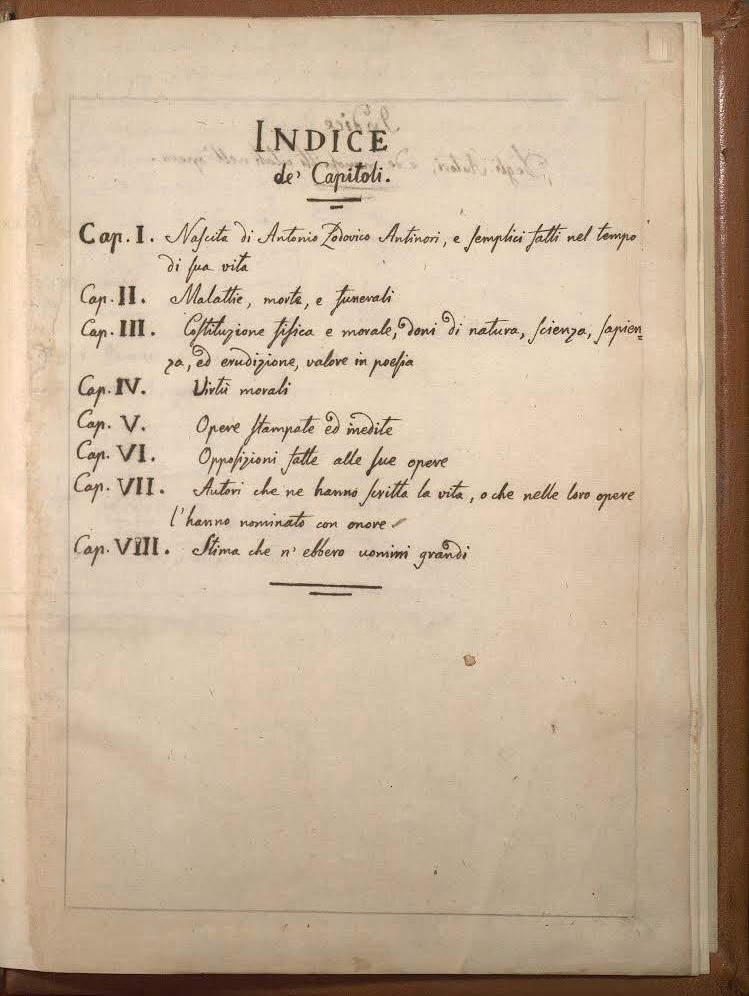 INDICE
de' Capitoli.
Cap. I. Nascita di Antonio Lodovico Antinori, e semplici fatti nel tempo
di sua vita
Cap. II. Malattie, morte, e funerali
Cap. III. Costituzione fisica e morale, doni di natura, scienza, sapien=
za, ed erudizione, valore in poesia
Cap. IV. Virtù morali
Cap. V. Opere stampate ed inedite
Cap. VI. Opposizioni fatte alle sue opere
Cap. VII. Autori che ne hanno scritta la vita, o che nelle loro opere
l'hanno nominato con onore
Cap. VIII. Stima che n' ebbero uomini grandi